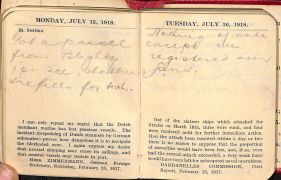 MONDAY, JULY 15, 1918.
St. Swithin.
Got a parcel
from Blighty
1 pr sox,
refills for
I can only repeat my regret that the Dutch
merchant marine has lost precious vessels. The
incident (torpedoing of Dutch steamers by German
submarines) proves how dangerous it is to navigate
the blockaded zone. I again express my desire
that neutral shipping may cease its sailings, and
that neutral vessels may remain in port.
HERR ZIMMERMANN, German Foreign
Secretary, Reichstag, February 28, 1917.
TUESDAY, JULY 16, 1918.
Nothing of note
except
registered
Out of the sixteen ships which attacked the
Straits on March 18th, three were sunk, and four
were rendered unfit for further immediate action.
Had the attack been renewed within a day or two
there is no reason to suppose that the proportion
of casualties would have been less, and, if so, even
had the second attack succeeded, a very weak force
would have been left for subsequent naval operations.
DARDANELLES COMMISSION, First
Report, February 12, 1917.